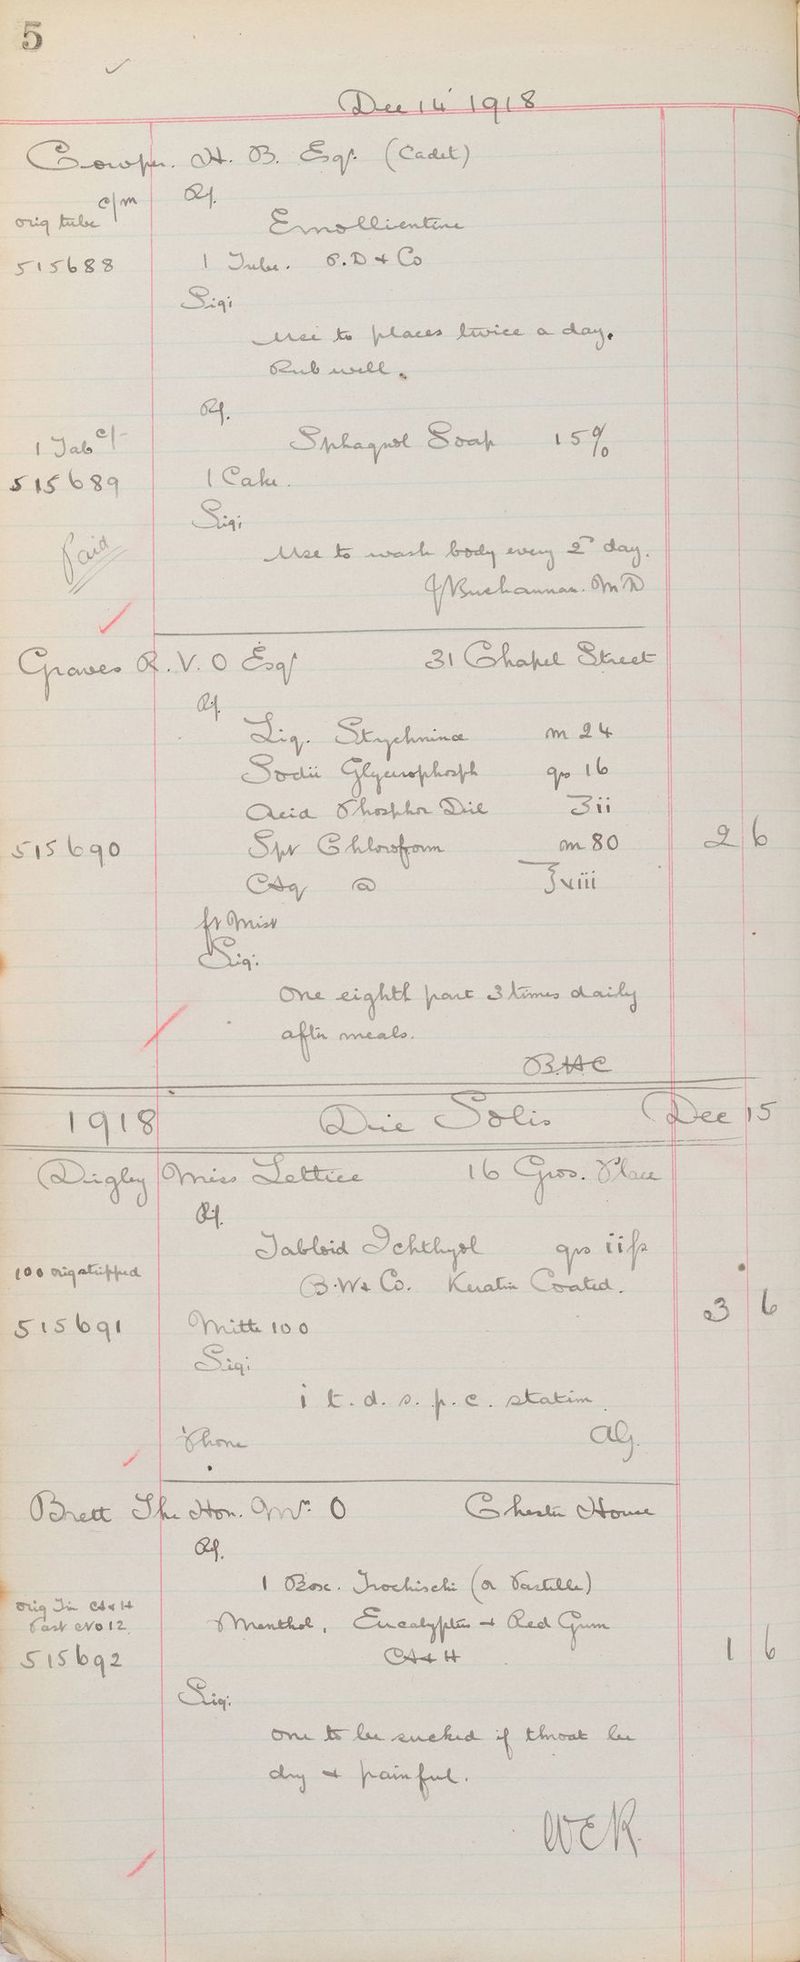 5
Dec 14 1918
Cowper. H. B. Esqr. (Cadet)
c/m Rx.
orig tube Emollientine
515688 1 Tube. P.D & Co
Sig:
Use to places twice a day.
Rub well.
Rx.
1 Tab c/- Sphagnol Soap 15%
515689 1 Cake.
Sig:
Paid
Use to wash body every 2nd day.
J Buchannan. M D
Graves R. V. O Esqr 31 Chapel Street
Rx.
Liq. Strychninae m 24
Sodii Glycerophosph grs 16
Acid Phosphor Dil ʒii
515690 Spr Chloroform m 80 2 6
Aq @ ℥viii
ft Mist
Sig:
One eighth part 3 times daily
after meals.
B.H.C
1918 Die Solis Dec 15
Digby Miss Lettice 16 Gros. Place
Rx.
Tabloid Ichthyol grs iifs
100 orig stripped B.W & Co. Keratin Coated.
515691 Mitte 100 3 6
Sig:
i t. d. s. p. c. statim
Phone AG.
Brett The Hon. Mrs. O Chester House
Rx.
1 Box. Trochisci (or Pastilles)
orig Tin A & H
Past No 12 Menthol, Eucalyptus & Red Gum
515692 A & H 1 6
Sig:
One to be sucked if throat be
dry & painful.
WER.